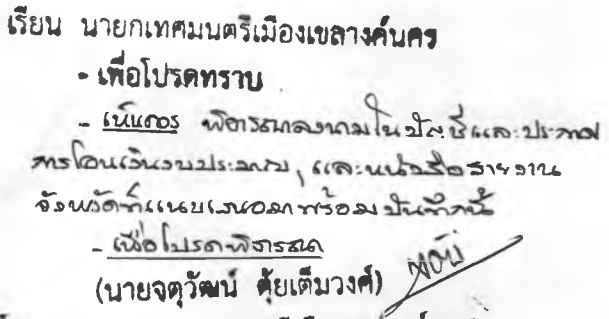 เรียน นายกเทศมนตรีเมืองเขลางค์นคร
- เพื่อโปรดทราบ
- เห็นควร พิจารณาลงนามในบัญชีและประกาศ
การโอนเงินงบประมาณ, และหนังสือรายงาน
จังหวัดที่แนบเสนอมาพร้อมบันทึกนี้
- เพื่อโปรดพิจารณา
(นายจตุวัฒน์ ตุ้ยเต็มวงศ์)